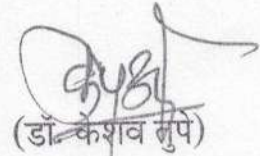 (डॉ. केशव तुपे)